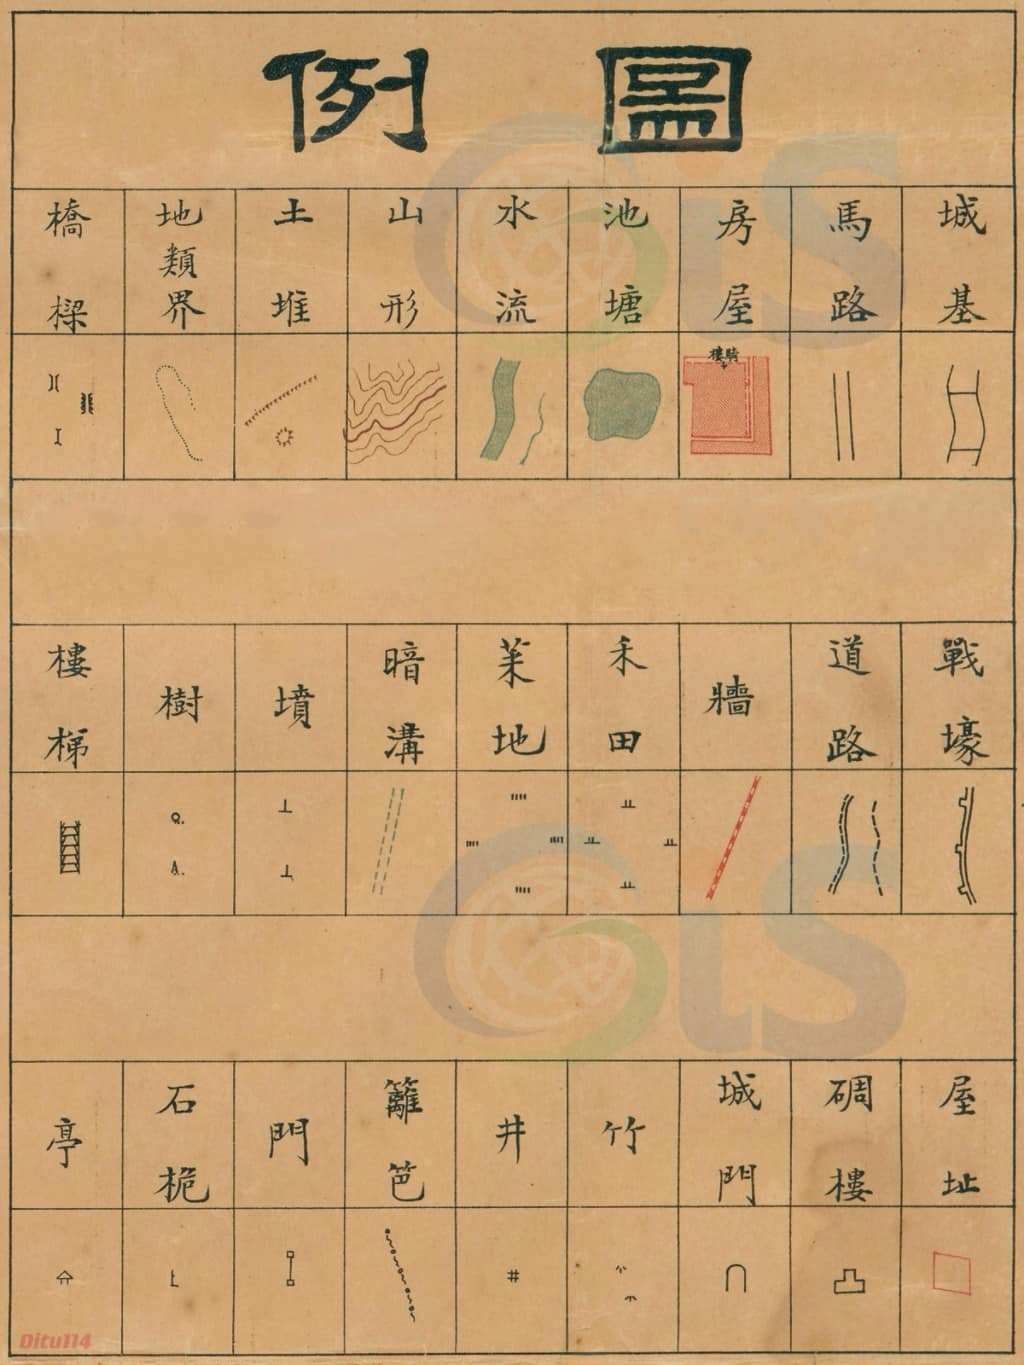 圖例
城基
馬路
房屋
池塘
水流
山形
土堆
地類界
橋樑
騎樓
戰壕
道路
牆
禾田
菜地
暗溝
墳
樹
樓梯
屋址
碉樓
城門
竹
井
籬笆
門
石桅
亭
GiS
GiS
Ditu114